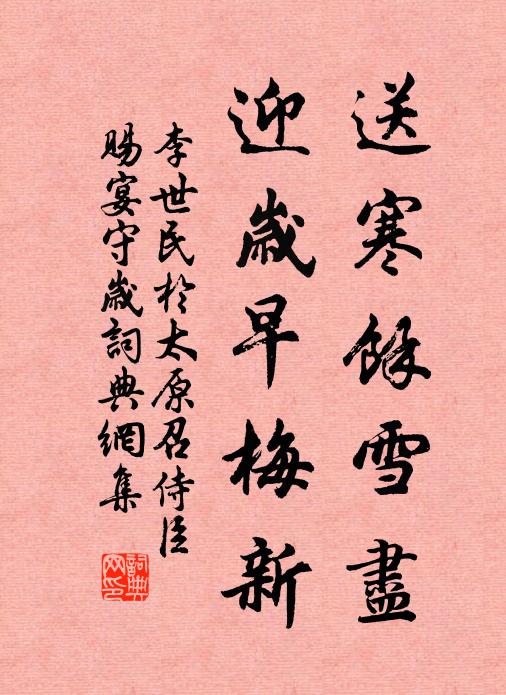 送寒餘雪盡
迎歲早梅新
李世民於太原召侍臣
賜宴守歲詞典網集
詞典网印